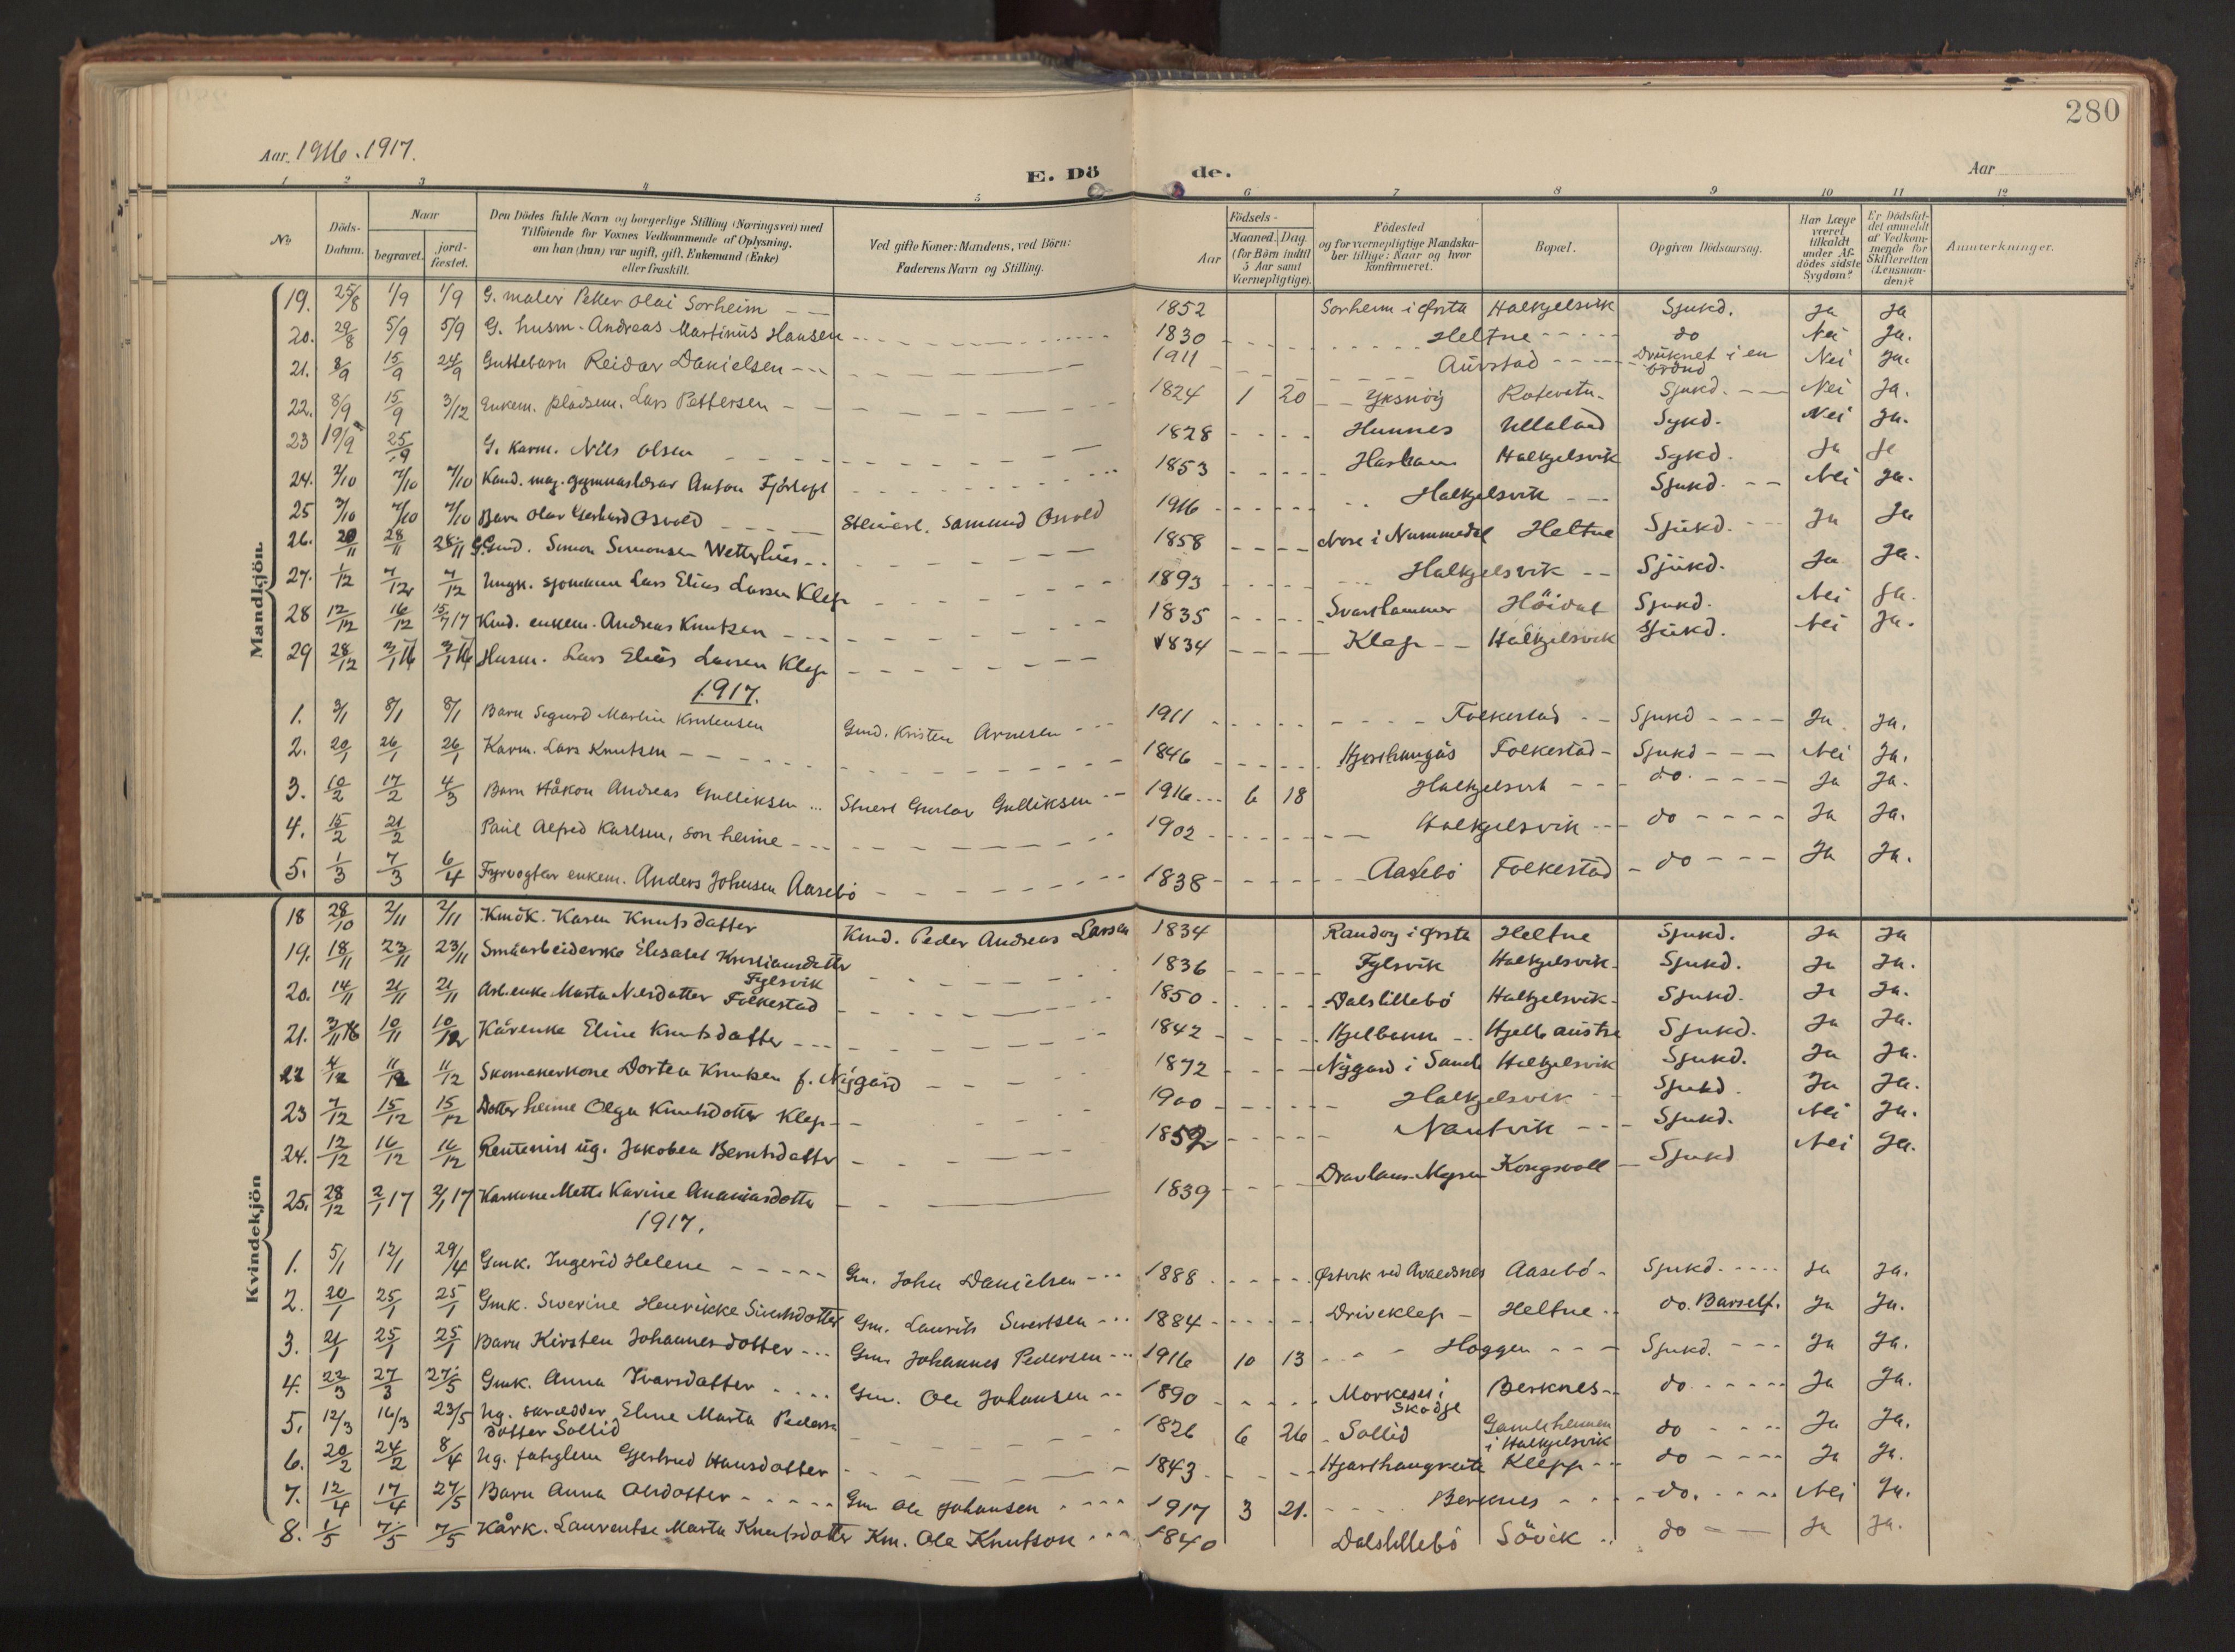 280
Aar 1916-1917.
E. Döde.
Aar
1 2 3 4 5 6 7 8 9 10 11 12
No
Döds-Datum.
Naar
begravet.
jordfæstet.
Den Dödes fulde Navn og borgerlige Stilling (Næringsvei) med
Tilföiende for Voxnes Vedkommende af Oplysning,
om han (hun) var ugift, gift, Enkemand (Enke)
eller fraskilt.
Ved gifte Koner: Mandens, ved Börn:
Faderens Navn og Stilling.
Födsels-
Aar
Maaned. Dag.
(for Börn indtil
5 Aar samt
Værnepligtige).
Födested
og for værnepligtige Mandskaber tillige: Naar og hvor
konfirmeret.
Bopæl.
Opgiven Dödsaarsag.
Har Læge
været
tilkaldt
under Afdödes sidste
Sygdom?
Er Dödsfaldet anmeldt
af Vedkommende for
Skifteretten
(Lensmanden)?
Anmerkninger.
Mandkjön.
19. 25/8 1/9 1/9 G. maler Peter Olai Sorheim 1852 Sorheim i Ørsta Halkjelsvik Sjukd. Ja Ja
20. 29/8 5/9 5/9 G. husm. Andreas Martinus Hansen 1830 Heltne do Nei Ja.
21. 8/9 15/9 24/9 Guttebarn Reidar Danielsen 1911 Aurstad Druknet i en brønd Nei Ja.
22. 8/9 15/9 3/12 Enkem. pladsm. Lars Pettersen 1824 1 20 Yksnöy Sjukd. Nei Ja.
23 19/9 25/9 G. karm. Nils Olsen 1828 Hunnes Ulleland Sykd. Nei Ja.
24. 2/10 7/10 7/10 Kand. mag. gymnaslærar Anton Fjörtoft 1853 Harham Halkjelsvik Sykd. Ja Ja
25 3/10 7/10 7/10 Barn Olav Gerhard Osvold Steinarb. Samund Osvold 1916 Halkjelsvik Sjukd. Nei Ja.
26. 20/11 28/11 28/11 G. Gmd. Simon Simonsen Wetterhus 1858 Nore i Nummedal Heltne Sjukd. Ja Ja
27. 1/12 7/12 7/12 Ungk. sjömann Lars Elias Larsen Klep 1893 Halkjelsvik Sjukd. Ja Ja.
28 12/12 16/12 15/7 17 Kmd. enkem. Andreas Knutsen 1835 Svarthammer Höidal Sjukd. Nei Ja.
29 28/12 3/1 3/1 Husm. Lars Elias Larsen Klep 1834 Klep Halkjelsvik Sjukd. Nei Ja.
1917.
1. 3/1 8/1 8/1 Barn Sigurd Martin Kristensen Gmd. Kristen Arnesen 1911 Folkestad Sjukd Ja Ja.
2. 20/1 26/1 26/1 Karm. Lars Knutsen 1846 Folkestad Sjukd Nei Ja.
3. 10/2 17/2 4/3 Barn Håkon Andreas Gulliksen Gustav Gulliksen 1916 6 18 Halkjelsvik do. Ja Ja.
4. 15/2 21/2 Paul Alfred Karlsen, son heime 1902 Halkjelsvik do Ja Ja.
5. 1/3 7/3 6/4 Fyrvogtar enkem. Anders Johnsen Aasebö 1838 Aasebö Folkestad do Ja Ja.
Kvindekjön
18 28/10 2/11 2/11 Kmdk. Karen Knutsdatter Kmd. Peder Andreas Larsen 1834 Randøy i Ørsta Heltne Sjukd. Ja Ja
19. 18/11 23/11 23/11 Småarbeiderske Elisabet Kristiansdatter Fylsvik 1836 Fylsvik Halkjelsvik Sjukd. Ja Ja.
20. 14/11 21/11 21/11 Arb.enke Marta Nilsdatter Folkestad 1850 Dalslillebö Halkjelsvik Sjukd. Ja Ja.
21. 3/11 16 10/11 10/12 Kårenke Eline Knutsdatter 1842 Sjukd. Ja Ja.
22 4/12 11/12 11/12 Skomakerkone Dortea Knutsen f. Nygård 1872 Nygard i Sande Halkjelsvik Sjukd. Ja Ja.
23 7/12 15/12 15/12 Dotter heime Olga Knutsdotter Klep 1900 Halkjelsvik Sjukd. Ja Ja.
24. 12/12 16/12 16/12 Rentenist ug. Jakobea Berntsdatter 1852 Nautvik Sjukd. Nei Ja.
25. 28/12 2/1 17 2/1 17 Karkone Mette Karine Ananiasdotter 1839 Kongsvoll Sjukd Nei Ja.
1917.
1. 5/1 12/1 29/4 Gmk. Ingerid Helene Gm. John Danielsen 1888 Østvik ved Avaldsnes Aasebö Sjukd. Ja Ja.
2. 20/1 25/1 25/1 Gmk. Severine Henrikke Sivertsdotter Gm. Laurits Sivertsen 1884 Driveklep Heltne do. Barself. Ja Ja.
3. 21/1 25/1 25/1 Barn Kirsten Johannesdotter Gm. Johannes Pedersen 1916 10 13 Haggen Sjukd. Ja Ja.
4. 22/3 27/3 27/5 Gmk. Anna Ivarsdatter Gm. Ole Johansen 1890 i Skodje Berknes do Ja Ja.
5. 12/3 16/3 23/5 Ug. Eline Marta Pedersdotter Sollid 1826 6 26 Sollid Gamleheimen i Halkjelsvik do Ja Ja.
6. 20/2 24/2 8/4 Ug. fatiglem Gjertrud Hansdotter 1843 Hjarthaugreite Klepp do Ja Ja.
7. 12/4 17/4 27/5 Barn Anna Olsdotter Gm Ole Johansen 1917 3 21. Berknes do. Nei Ja.
8. 1/5 7/5 7/5 Kårk. Laurentse Marta Knutsdotter Km. Ole Knutson 1840 Dalslillebö Sövik do Ja Ja.